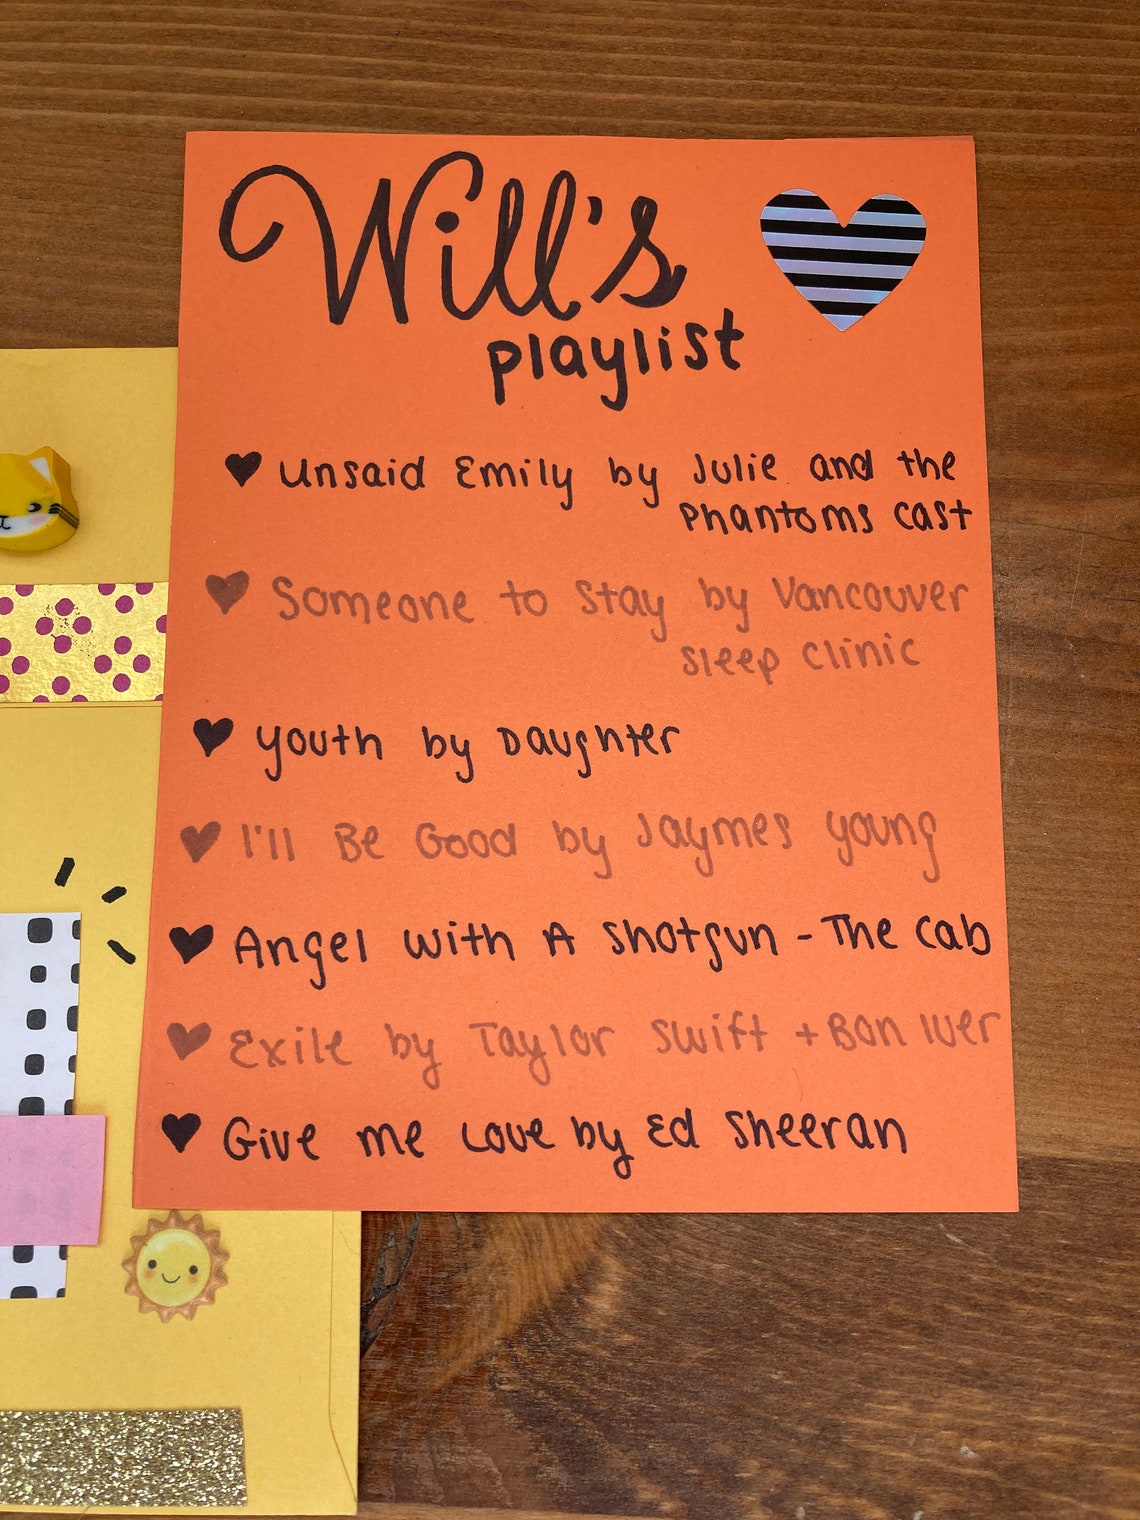 Will's
playlist
unsaid Emily by Julie and the
Phantoms cast
Someone to stay by Vancouver
sleep clinic
youth by Daughter
I'll Be Good by Jaymes young
Angel with A shotgun - The Cab
Exile by Taylor swift + Bon Iver
Give me Love by Ed sheeran